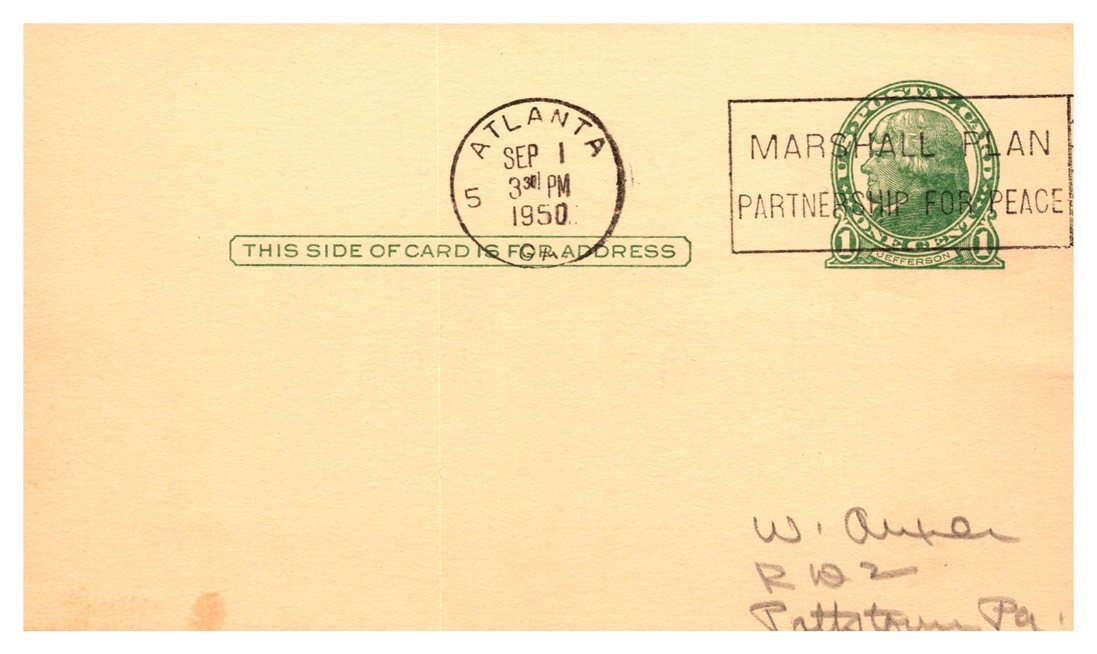 U.S. POSTAL CARD
ATLANTA
SEP 1
3 30 PM
1950
5
GA.
MARSHALL PLAN
PARTNERSHIP FOR PEACE
ONE CENT
1 1
JEFFERSON
THIS SIDE OF CARD IS FOR ADDRESS
W. Auxer
R D 2
Pottstown Pa.